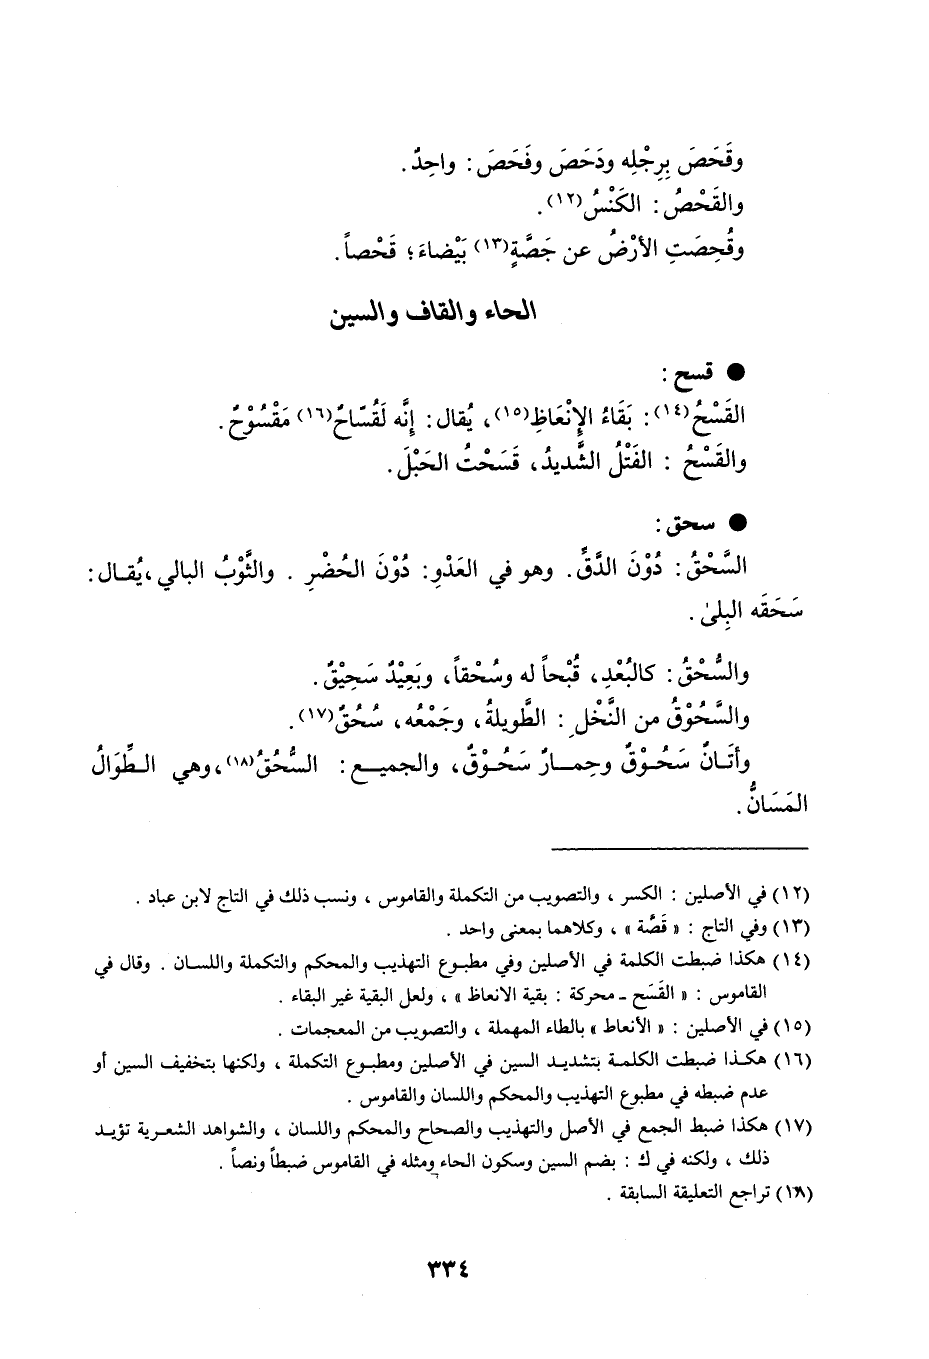 وقَحَصَ بِرِجْلِه ودَحَصَ وفَحَصَ : واحِدٌ .
والقَحْصُ : الكَنْسُ(١٢) .
وقُحِصَتِ الأرْضُ عن جَصَّةٍ(١٣) بَيْضاءَ ؛ قَحْصاً .
الحاء والقاف والسين
● قسح :
القَسْحُ(١٤) : بَقَاءُ الإِنْعَاظِ(١٥) ، يُقال : إِنَّه لَقُسّاحٌ(١٦) مَقْسُوْحٌ .
والقَسْحُ : الفَتْلُ الشَّديدُ ، قَسَحْتُ الحَبْلَ .
● سحق :
السَّحْقُ : دُوْنَ الدَّقِّ . وهو في العَدْوِ : دُوْنَ الحُضْرِ . والثَّوْبُ البالي ، يُقـال :
سَحَقَه البِلىٰ .
والسُّحْقُ : كالبُعْدِ ، قُبْحاً له وسُحْقاً ، وبَعِيْدٌ سَحِيْقٌ .
والسَّحُوْقُ من النَّخْلِ : الطَّويلةُ ، وجَمْعُه ، سُحُقٌ(١٧) .
وأتَـانٌ سَحُـوْقٌ وحِمـارٌ سَحُـوْقٌ ، والجميـع : السُّحُقُ(١٨) ، وهي الـطِّوَالُ
المَسَانُّ .
(١٢) في الأصلين : الكسر ، والتصويب من التكملة والقاموس ، ونسب ذلك في التاج لابن عباد .
(١٣) وفي التاج : « قَصَّة » ، وكلاهما بمعنى واحد .
(١٤) هكذا ضبطت الكلمة في الأصلين وفي مطبـوع التهذيب والمحكم والتكملة واللسـان . وقال في
القاموس : « القَسَح ـ محركة : بقية الانعاظ » ، ولعل البقية غير البقاء .
(١٥) في الأصلين : « الأنعاط » بالطاء المهملة ، والتصويب من المعجمات .
(١٦) هكـذا ضبطت الكلمـة بتشديـد السين في الأصلين ومطبـوع التكملة ، ولكنها بتخفيف السين أو
عدم ضبطه في مطبوع التهذيب والمحكم واللسان والقاموس .
(١٧) هكذا ضبط الجمع في الأصل والتهذيب والصحاح والمحكم واللسان ، والشواهد الشعـرية تؤيـد
ذلك ، ولكنه في ك : بضم السين وسكون الحاء ومثله في القاموس ضبطاً ونصاً .
(١٨) تراجع التعليقة السابقة .
٣٣٤